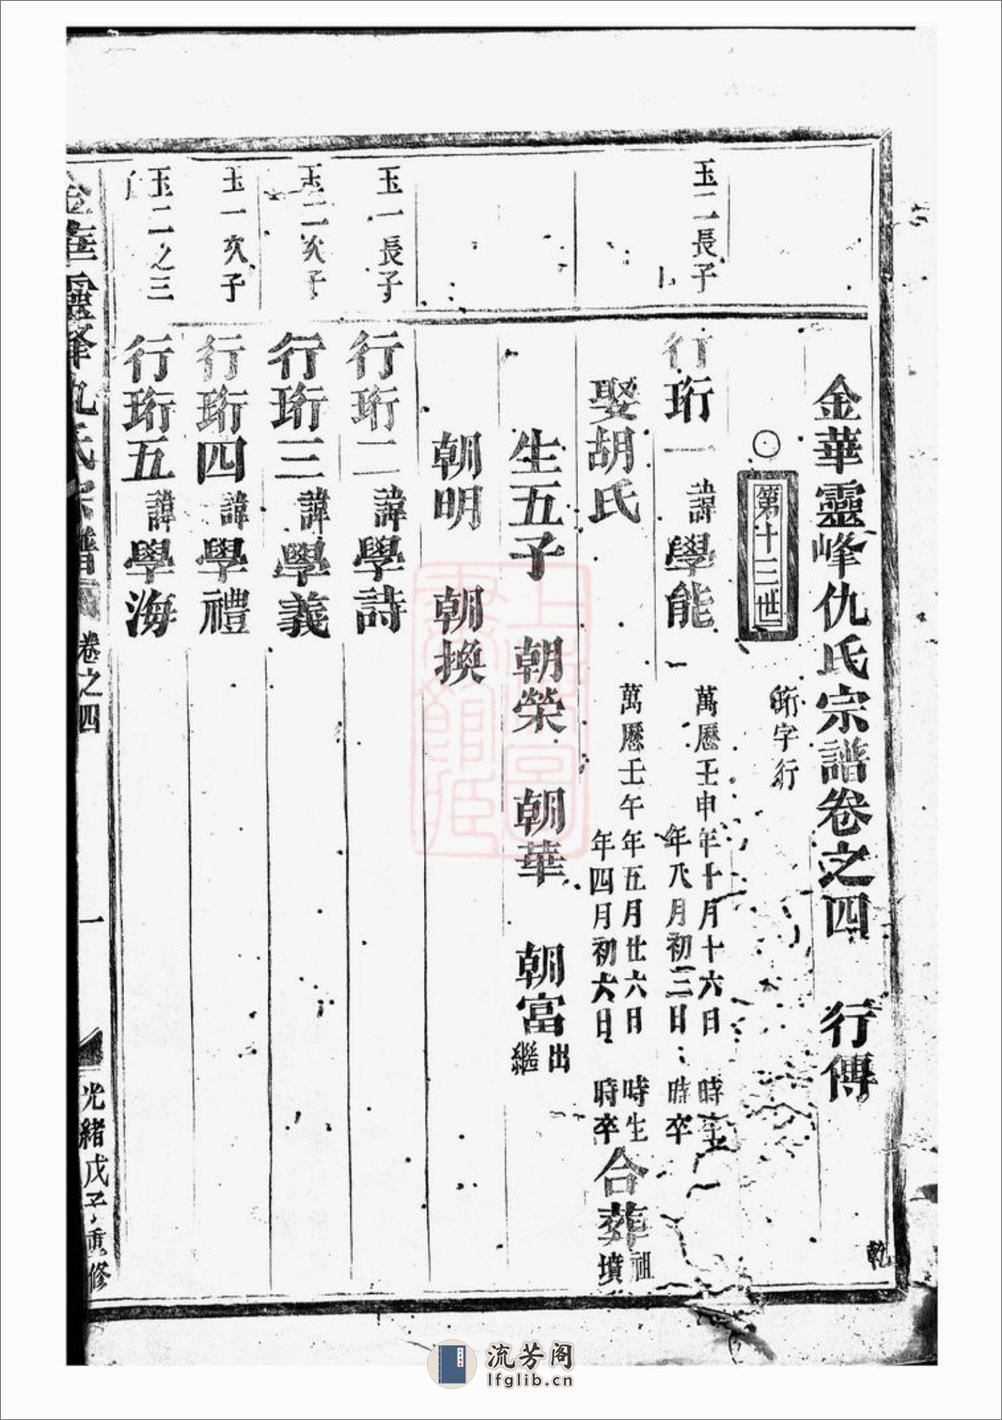 金華靈峰仇氏宗譜卷之四 行傳
乾
第十三世
珩字行
玉二長子
行珩一 諱學能 萬曆壬申年十月十六日 時生
年八月初三日 時卒
娶胡氏 萬曆壬午年五月廿六日 時生
年四月初六日 時卒 合葬祖墳
生五子 朝榮 朝華 朝富出繼
朝明 朝換
玉一長子
行珩二 諱學詩
玉二次子
行珩三 諱學義
玉一次子
行珩四 諱學禮
玉二之三
行珩五 諱學海
金華靈峰仇氏宗譜 卷之四 一 光緒戊子重修
上海圖書館藏
流芳阁
lfglib.cn